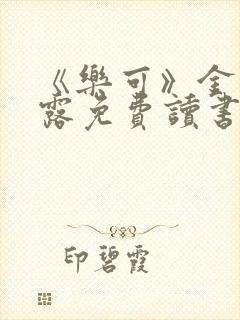 《樂可》金
露免費讀書
印碧霞